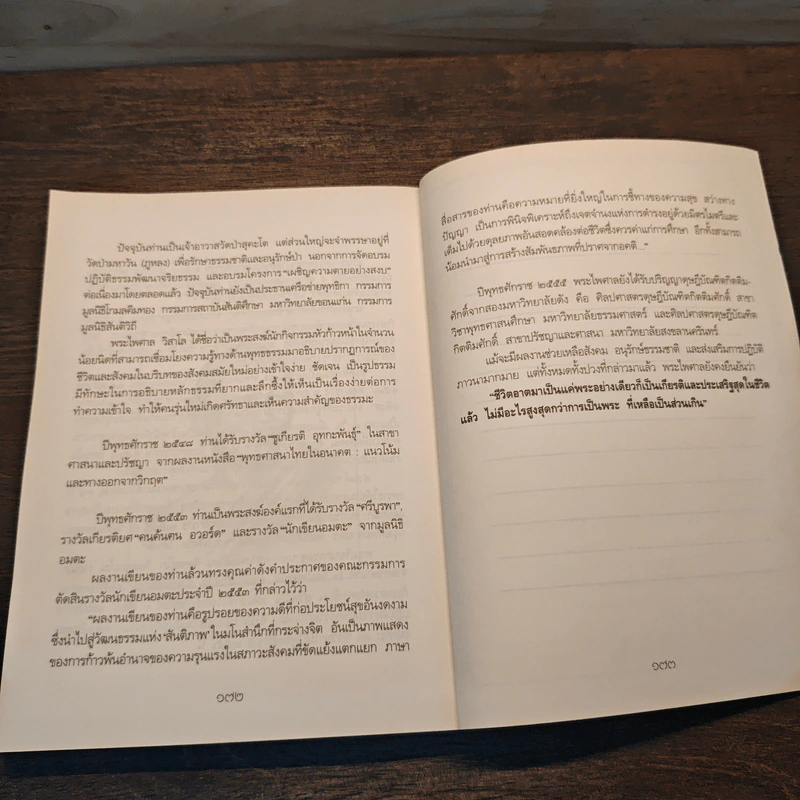 ปัจจุบันท่านเป็นเจ้าอาวาสวัดป่าสุคะโต แต่ส่วนใหญ่จะจำพรรษาอยู่ที่
วัดป่ามหาวัน (ภูหลง) เพื่อรักษาธรรมชาติและอนุรักษ์ป่า นอกจากการจัดอบรม
ปฏิบัติธรรมพัฒนาจริยธรรม และอบรมโครงการ“เผชิญความตายอย่างสงบ”
ต่อเนื่องมาโดยตลอดแล้ว ปัจจุบันท่านยังเป็นประธานเครือข่ายพุทธิกา กรรมการ
มูลนิธิโกมลคีมทอง กรรมการสถาบันสันติศึกษา มหาวิทยาลัยขอนแก่น กรรมการ
มูลนิธิสันติวิถี
พระไพศาล วิสาโล ได้ชื่อว่าเป็นพระสงฆ์นักกิจกรรมหัวก้าวหน้าในจำนวน
น้อยนิดที่สามารถเชื่อมโยงความรู้ทางด้านพุทธธรรมมาอธิบายปรากฏการณ์ของ
ชีวิตและสังคมในบริบทของสังคมสมัยใหม่อย่างเข้าใจง่าย ชัดเจน เป็นรูปธรรม
มีทักษะในการอธิบายหลักธรรมที่ยากและลึกซึ้งให้เห็นเป็นเรื่องง่ายต่อการ
ทำความเข้าใจ ทำให้คนรุ่นใหม่เกิดศรัทธาและเห็นความสำคัญของธรรมะ
ปีพุทธศักราช ๒๕๔๘ ท่านได้รับรางวัล“ชูเกียรติ อุทกะพันธุ์” ในสาขา
ศาสนาและปรัชญา จากผลงานหนังสือ“พุทธศาสนาไทยในอนาคต : แนวโน้ม
และทางออกจากวิกฤต”
ปีพุทธศักราช ๒๕๕๓ ท่านเป็นพระสงฆ์องค์แรกที่ได้รับรางวัล “ศรีบูรพา”,
รางวัลเกียรติยศ“คนค้นฅน อวอร์ด” และรางวัล“นักเขียนอมตะ” จากมูลนิธิ
อมตะ
ผลงานเขียนของท่านล้วนทรงคุณค่าดังคำประกาศของคณะกรรมการ
ตัดสินรางวัลนักเขียนอมตะประจำปี ๒๕๕๓ ที่กล่าวไว้ว่า
“ผลงานเขียนของท่านคือรูปรอยของความดีที่ก่อประโยชน์สุขอันงดงาม
ซึ่งนำไปสู่วัฒนธรรมแห่ง‘สันติภาพ’ในมโนสำนึกที่กระจ่างจิต อันเป็นภาพแสดง
ของการก้าวพ้นอำนาจของความรุนแรงในสภาวะสังคมที่ขัดแย้งแตกแยก ภาษา
๑๗๒
สื่อสารของท่านคือความหมายที่ยิ่งใหญ่ในการชี้ทางของความสุข สว่างทาง
ปัญญา เป็นการพินิจพิเคราะห์ถึงเจตจำนงแห่งการดำรงอยู่ด้วยมิตรไมตรีและ
เต็มไปด้วยดุลยภาพอันสอดคล้องต่อชีวิตซึ่งควรค่าแก่การศึกษา อีกทั้งสามารถ
น้อมนำมาสู่การสร้างสัมพันธภาพที่ปราศจากอคติ...”
ปีพุทธศักราช ๒๕๕๕ พระไพศาลยังได้รับปริญญาดุษฎีบัณฑิตกิตติม-
ศักดิ์จากสองมหาวิทยาลัยดัง คือ ศิลปศาสตรดุษฎีบัณฑิตกิตติมศักดิ์ สาขา
วิชาพุทธศาสนศึกษา มหาวิทยาลัยธรรมศาสตร์ และศิลปศาสตรดุษฎีบัณฑิต
กิตติมศักดิ์ สาขาปรัชญาและศาสนา มหาวิทยาลัยสงขลานครินทร์
แม้จะมีผลงานช่วยเหลือสังคม อนุรักษ์ธรรมชาติ และส่งเสริมการปฏิบัติ
ภาวนามากมาย แต่ทั้งหมดทั้งปวงที่กล่าวมาแล้ว พระไพศาลยังคงยืนยันว่า
“ชีวิตอาตมาเป็นแค่พระอย่างเดียวก็เป็นเกียรติและประเสริฐสุดในชีวิต
แล้ว ไม่มีอะไรสูงสุดกว่าการเป็นพระ ที่เหลือเป็นส่วนเกิน”
๑๗๓